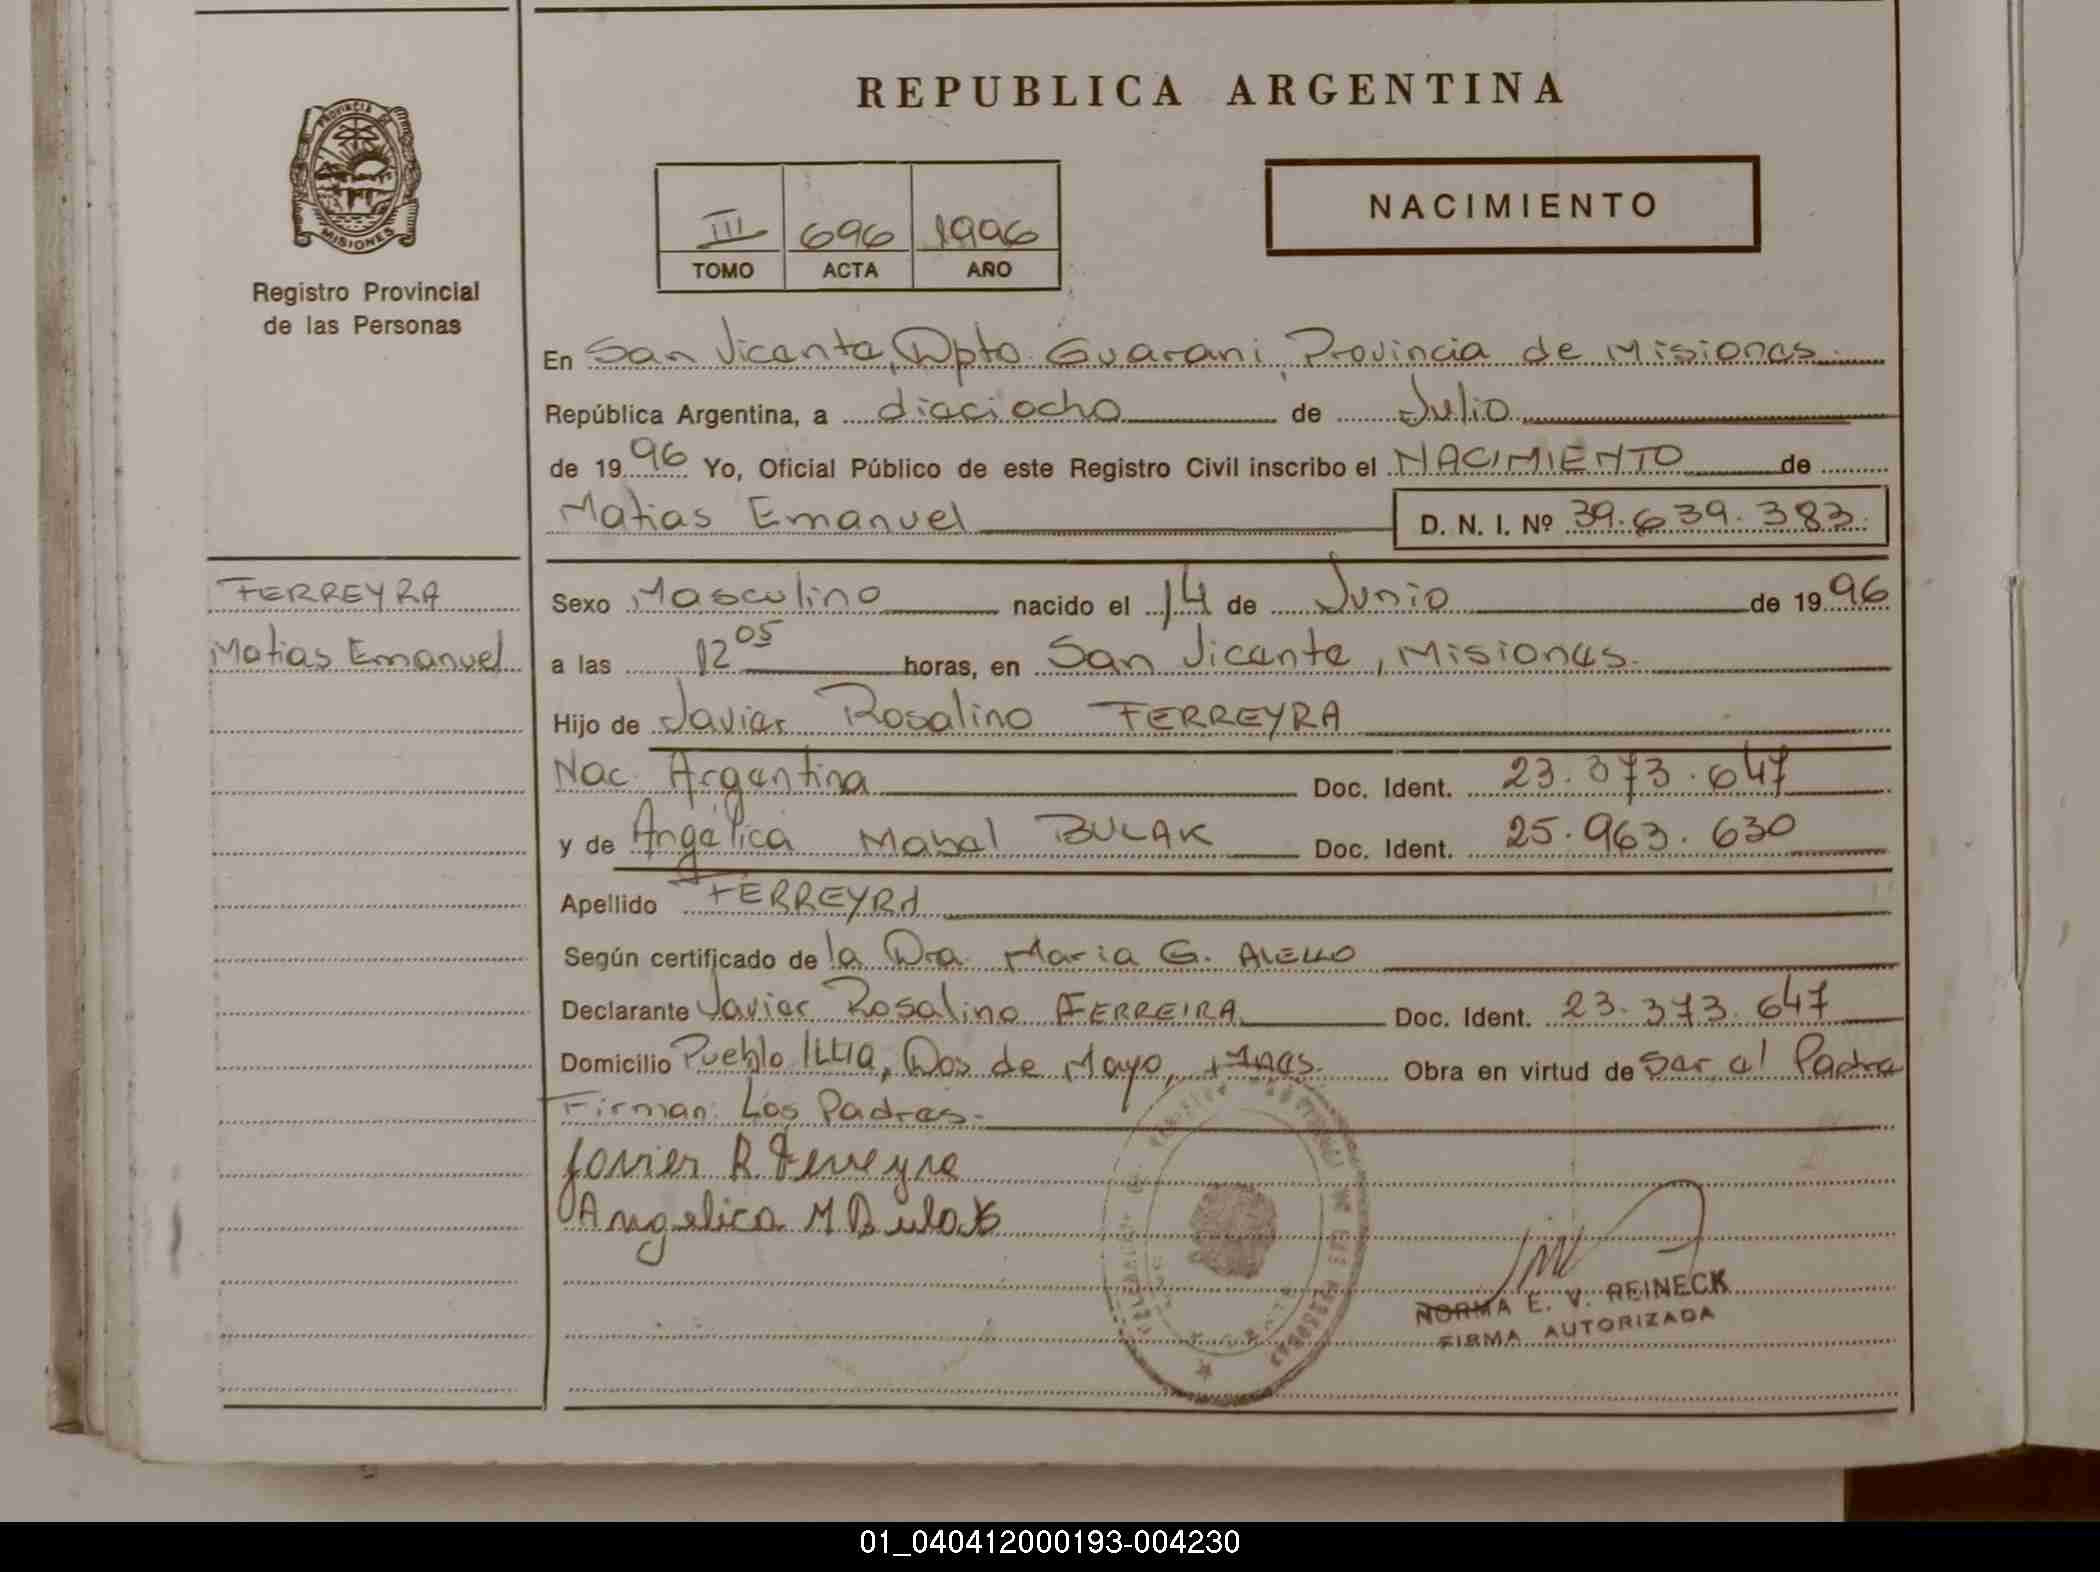 REPUBLICA ARGENTINA
PROVINCIA DE
MISIONES
Registro Provincial
de las Personas
III 696 1996
TOMO ACTA AÑO
NACIMIENTO
En San Vicente, Dpto. Guarani, Provincia de Misiones.
República Argentina, a dieciocho de Julio
de 1996 Yo, Oficial Público de este Registro Civil inscribo el NACIMIENTO de
Matias Emanuel D. N. I. Nº 39.639.383.
FERREYRA
Matias Emanuel
Sexo Masculino nacido el 14 de Junio de 1996
a las 12 05 horas, en San Vicente, Misiones.
Hijo de Javier Rosalino FERREYRA
Nac. Argentina Doc. Ident. 23.373.647
y de Angélica Mabel BULAK Doc. Ident. 25.963.630
Apellido FERREYRA
Según certificado de la Dra. Maria G. ALELLO
Declarante Javier Rosalino FERREIRA Doc. Ident. 23.373.647
Domicilio Pueblo ILLIA, Dos de Mayo, Mnes. Obra en virtud de ser el Padre
Firman: Los Padres.
Javier R. Ferreyra
Angelica M Bulak
NORMA E. V. REINECK
FIRMA AUTORIZADA
01_040412000193-004230